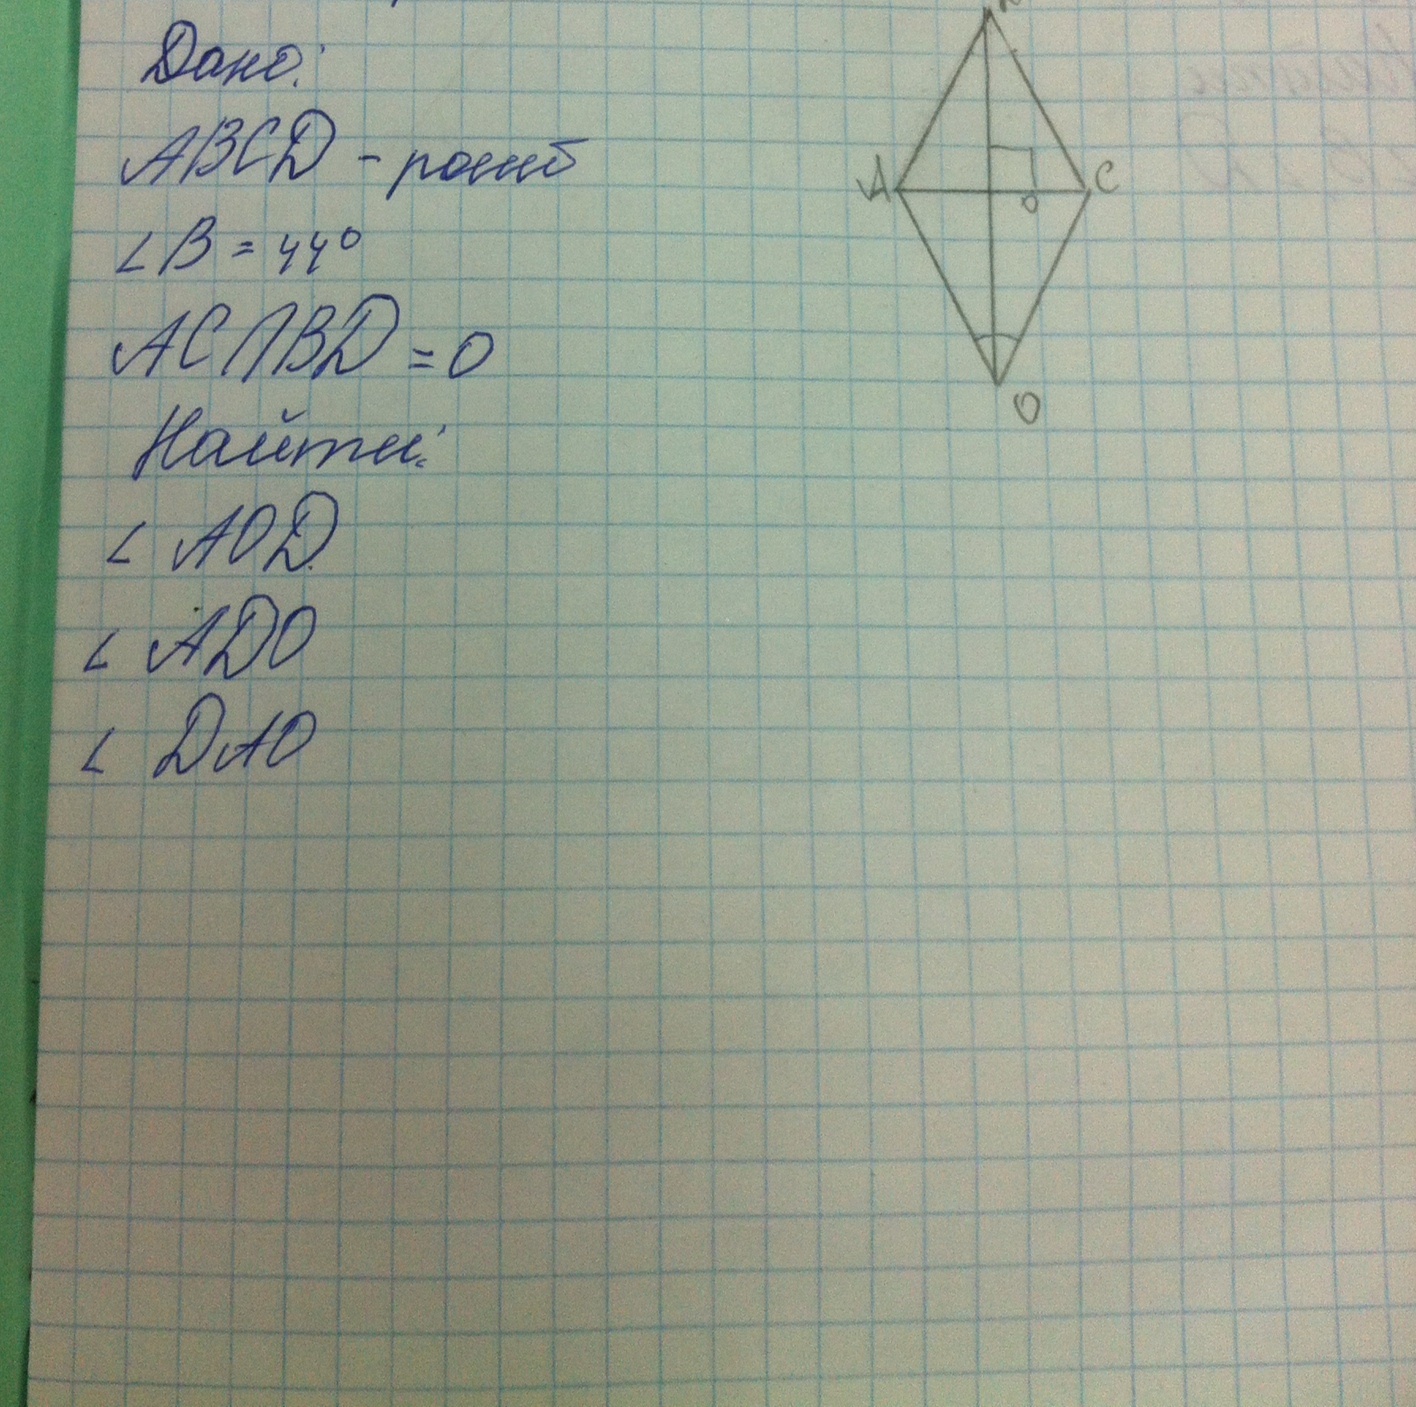 Дано:
ABCD - ромб
∠B = 44°
AC∩BD = O
Найти:
∠ AOD
∠ ADO
∠ DAO
A
C
o
O